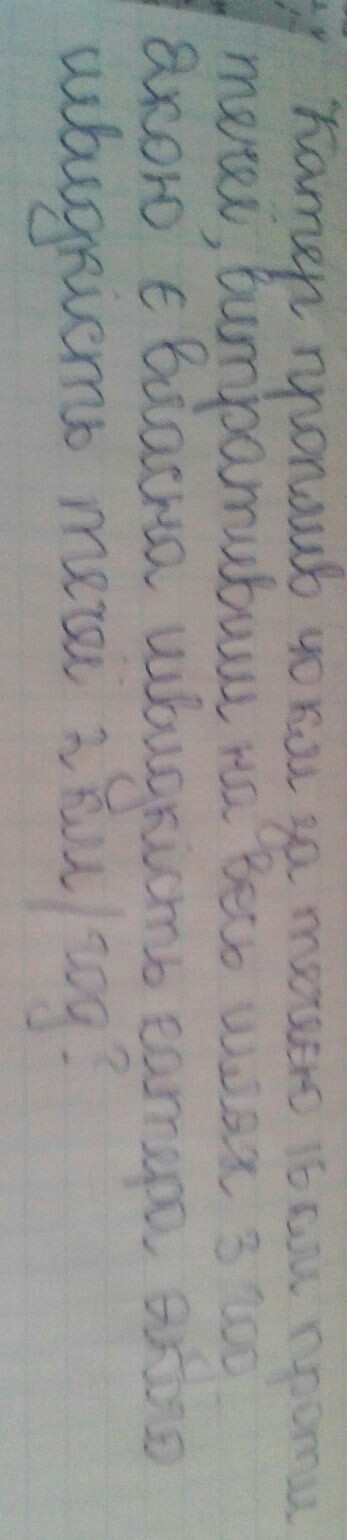 Катер проплив 40 км за течією 16 км проти
течії, витративши на весь шлях 3 год.
Якою є власна швидкість катера, якщо
швидкість течії 2 км/год?